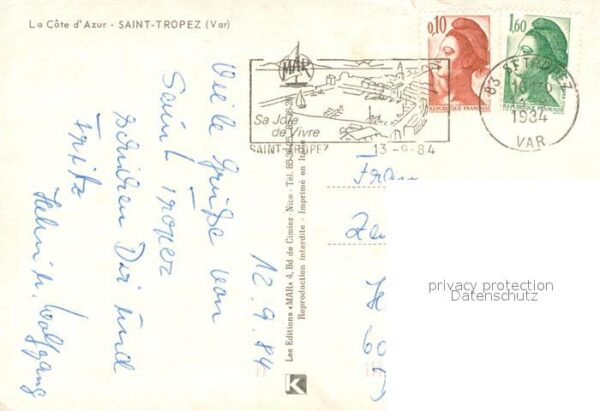 La Côte d'Azur - SAINT-TROPEZ (Var)
12.9.84
Viele Grüße von
Saint Tropez
schicken Dir und
Fritz
u. Wolfgang
Les Editions «MAR» 4, Bd de Cimiez - Nice - Tél.
Reproduction interdite - Imprimé en Italie
K
MAR
Sa Joie
de Vivre
SAINT-TROPEZ
13-9-84
0,10
REPUBLIQUE FRANÇAISE
1,60
REPUBLIQUE FRANÇAISE
83 ST TROPEZ
1934
VAR
Fran
privacy protection
Datenschutz